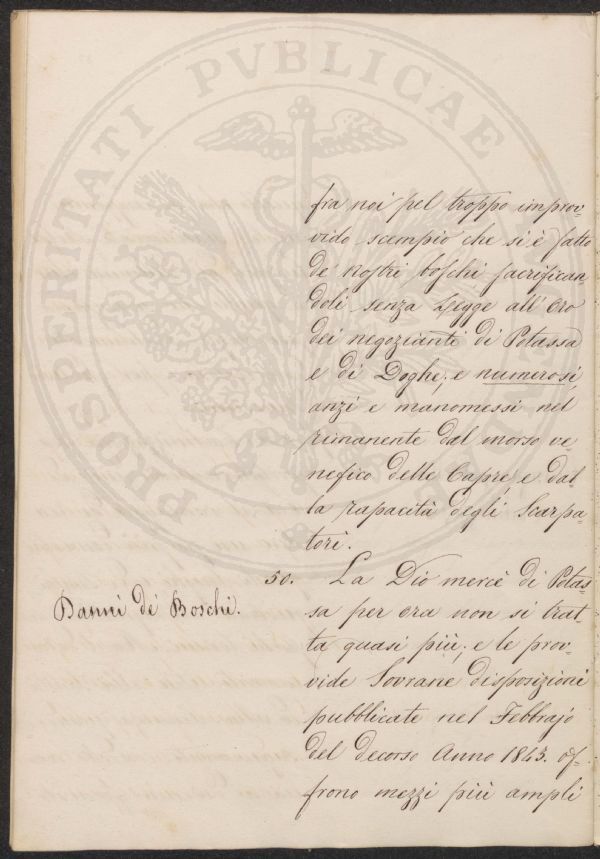 fra noi pel troppo improv-
vido scempio che si è fatto
de' nostri boschi sacrifican-
doli senza Legge all' Oro
dei negozianti di Potassa
e di Doghe; e numerosi
anzi e manomessi nel
rimanente dal morso ve-
nefico delle Capre, e dal-
la rapacità degli Scarpa-
tori.
50. La Dio mercè di Potas-
Danni de' Boschi.
sa per ora non si trat-
ta quasi più; e le prov-
vide Sovrane disposizioni
pubblicate nel Febbrajo
del decorso Anno 1843. of-
frono mezzi più ampli
PROSPERITATI PVBLICAE